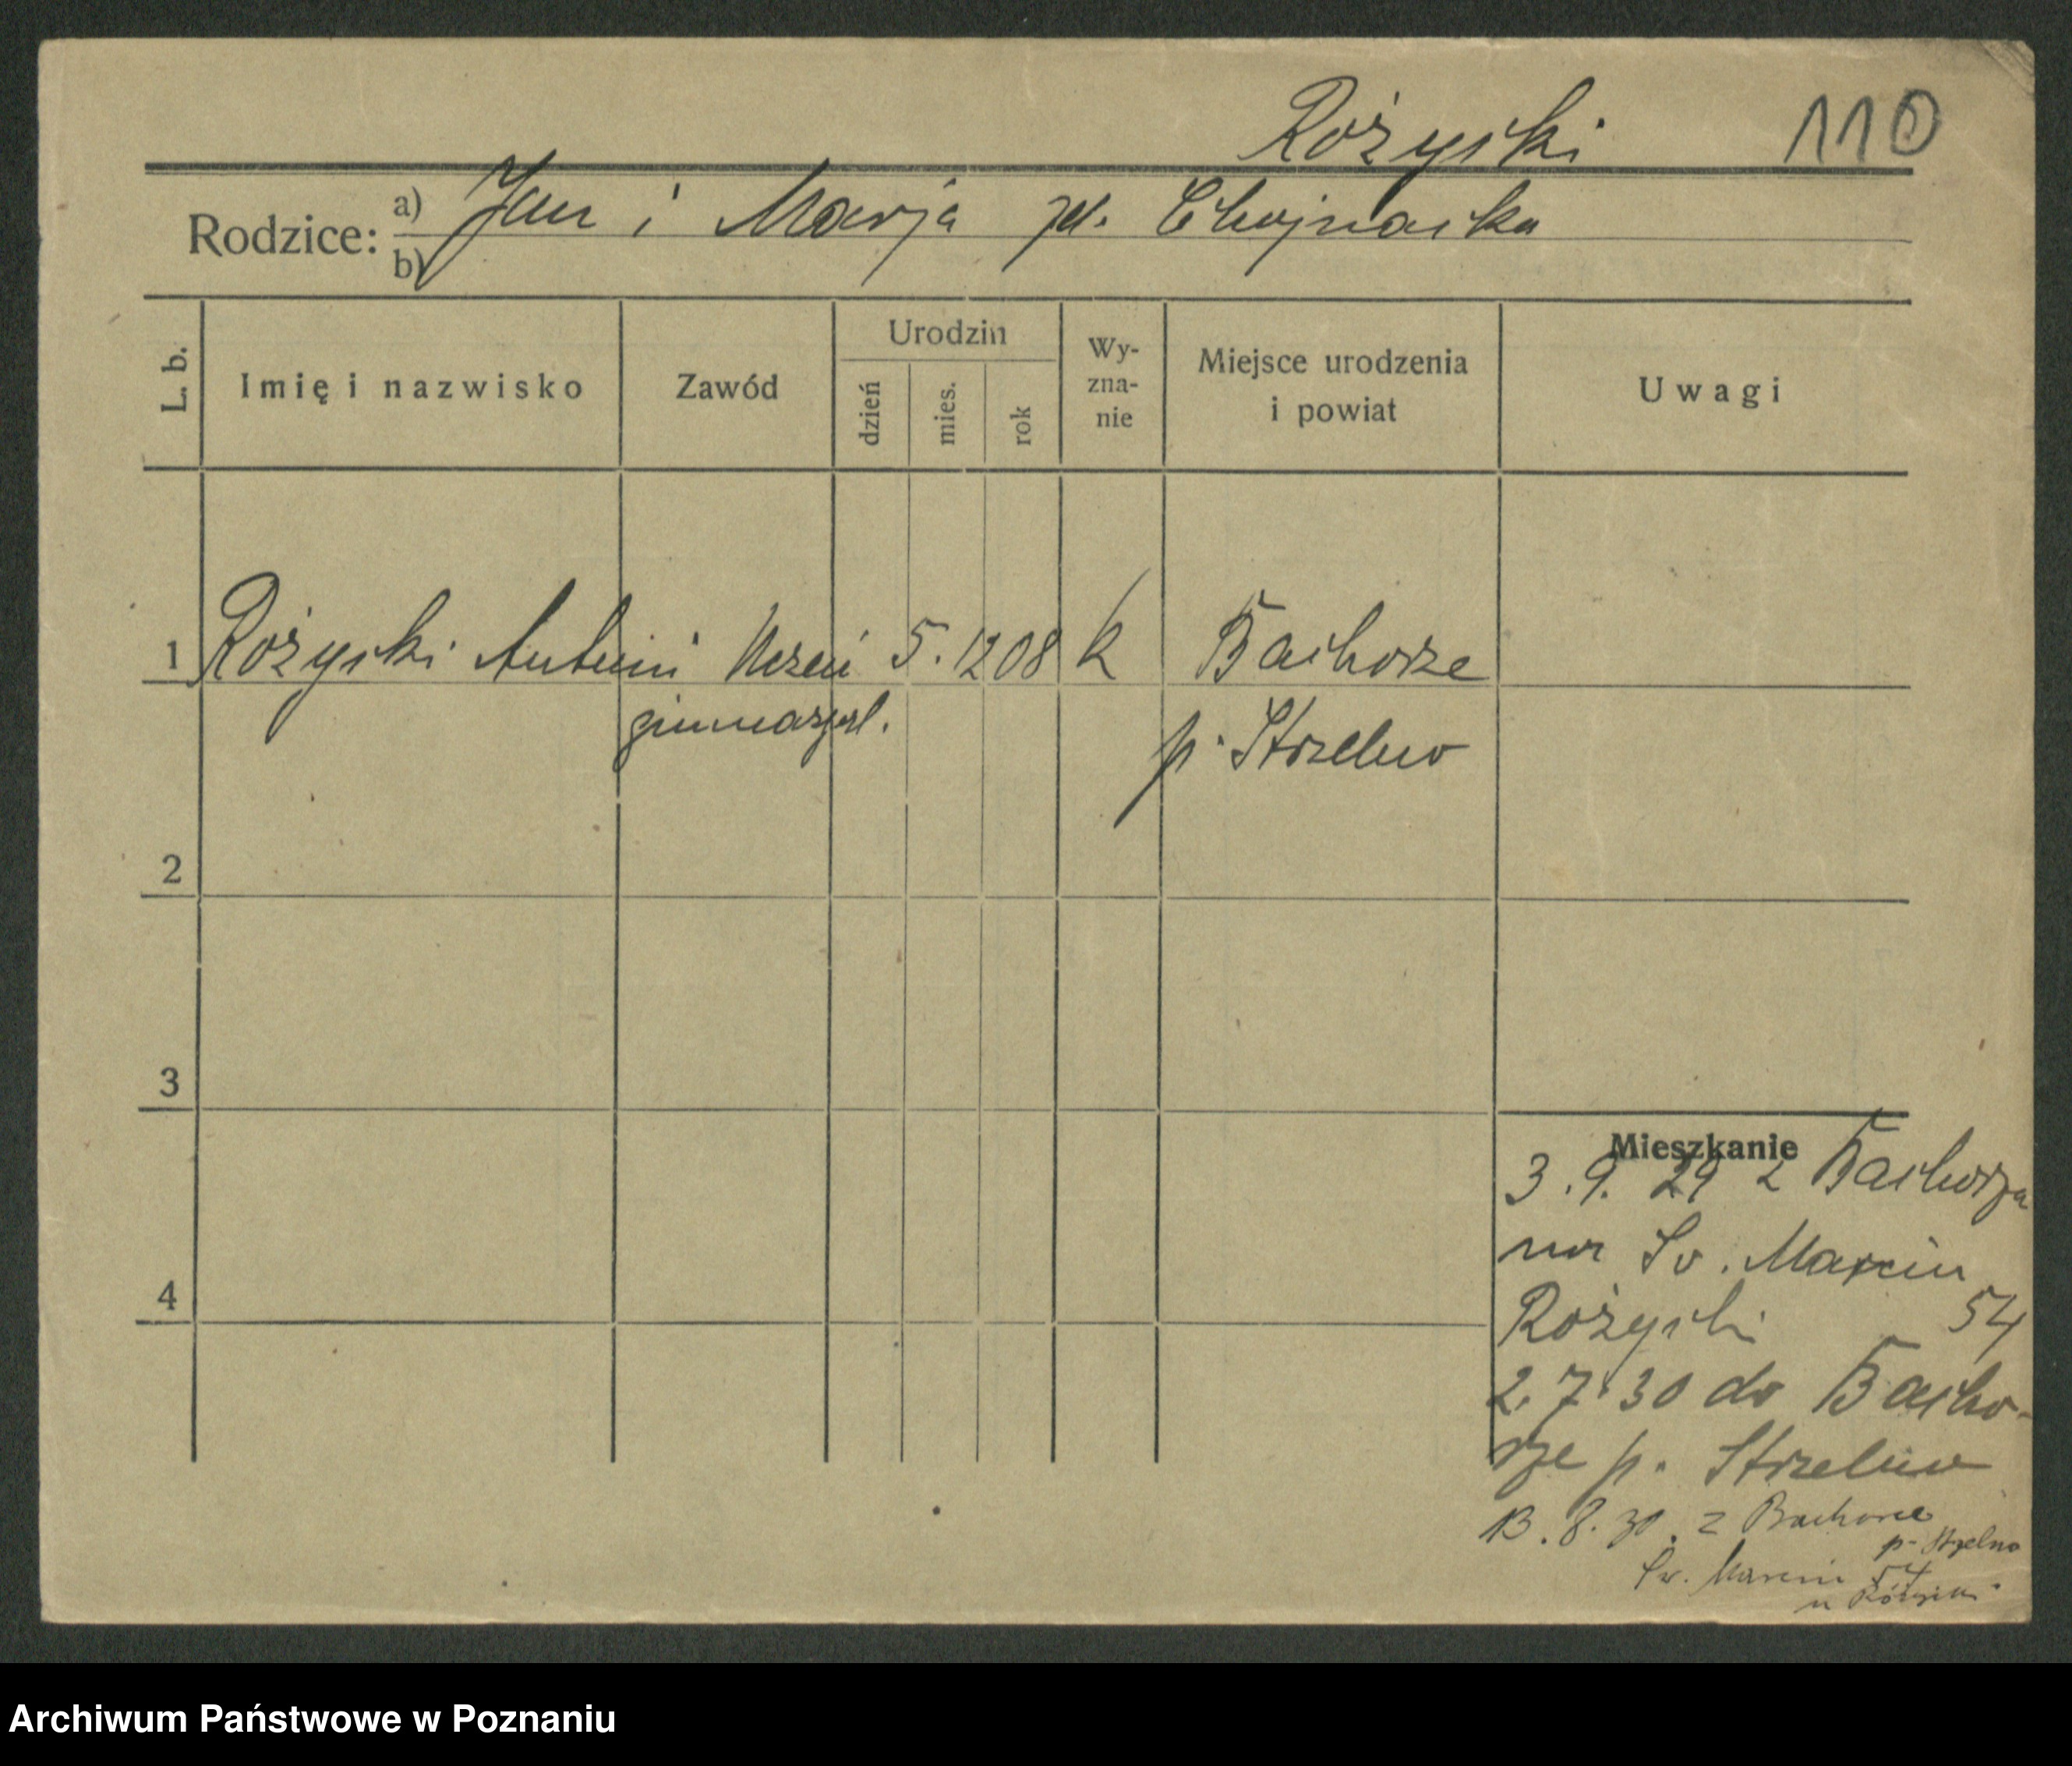 Rożyski 110
Rodzice: a) Jan i Marja zd. Chojnacka
b)
L. b. Imię i nazwisko Zawód Urodzin dzień mies. rok Wy-zna-nie Miejsce urodzenia i powiat Uwagi
1 Rożyski Antoni Uczeń 5. 12 08 k Bachorze
gimnazjal. p. Strzelno
2
3
4
Mieszkanie
3.9.29 z Bachorza
na Św. Marcin
Rożyski 54
2.7.30 do Bacho-
rze p. Strzelno
13.8.30. z Bachorze
p. Strzelno
Św. Marcin 54
u
Archiwum Państwowe w Poznaniu